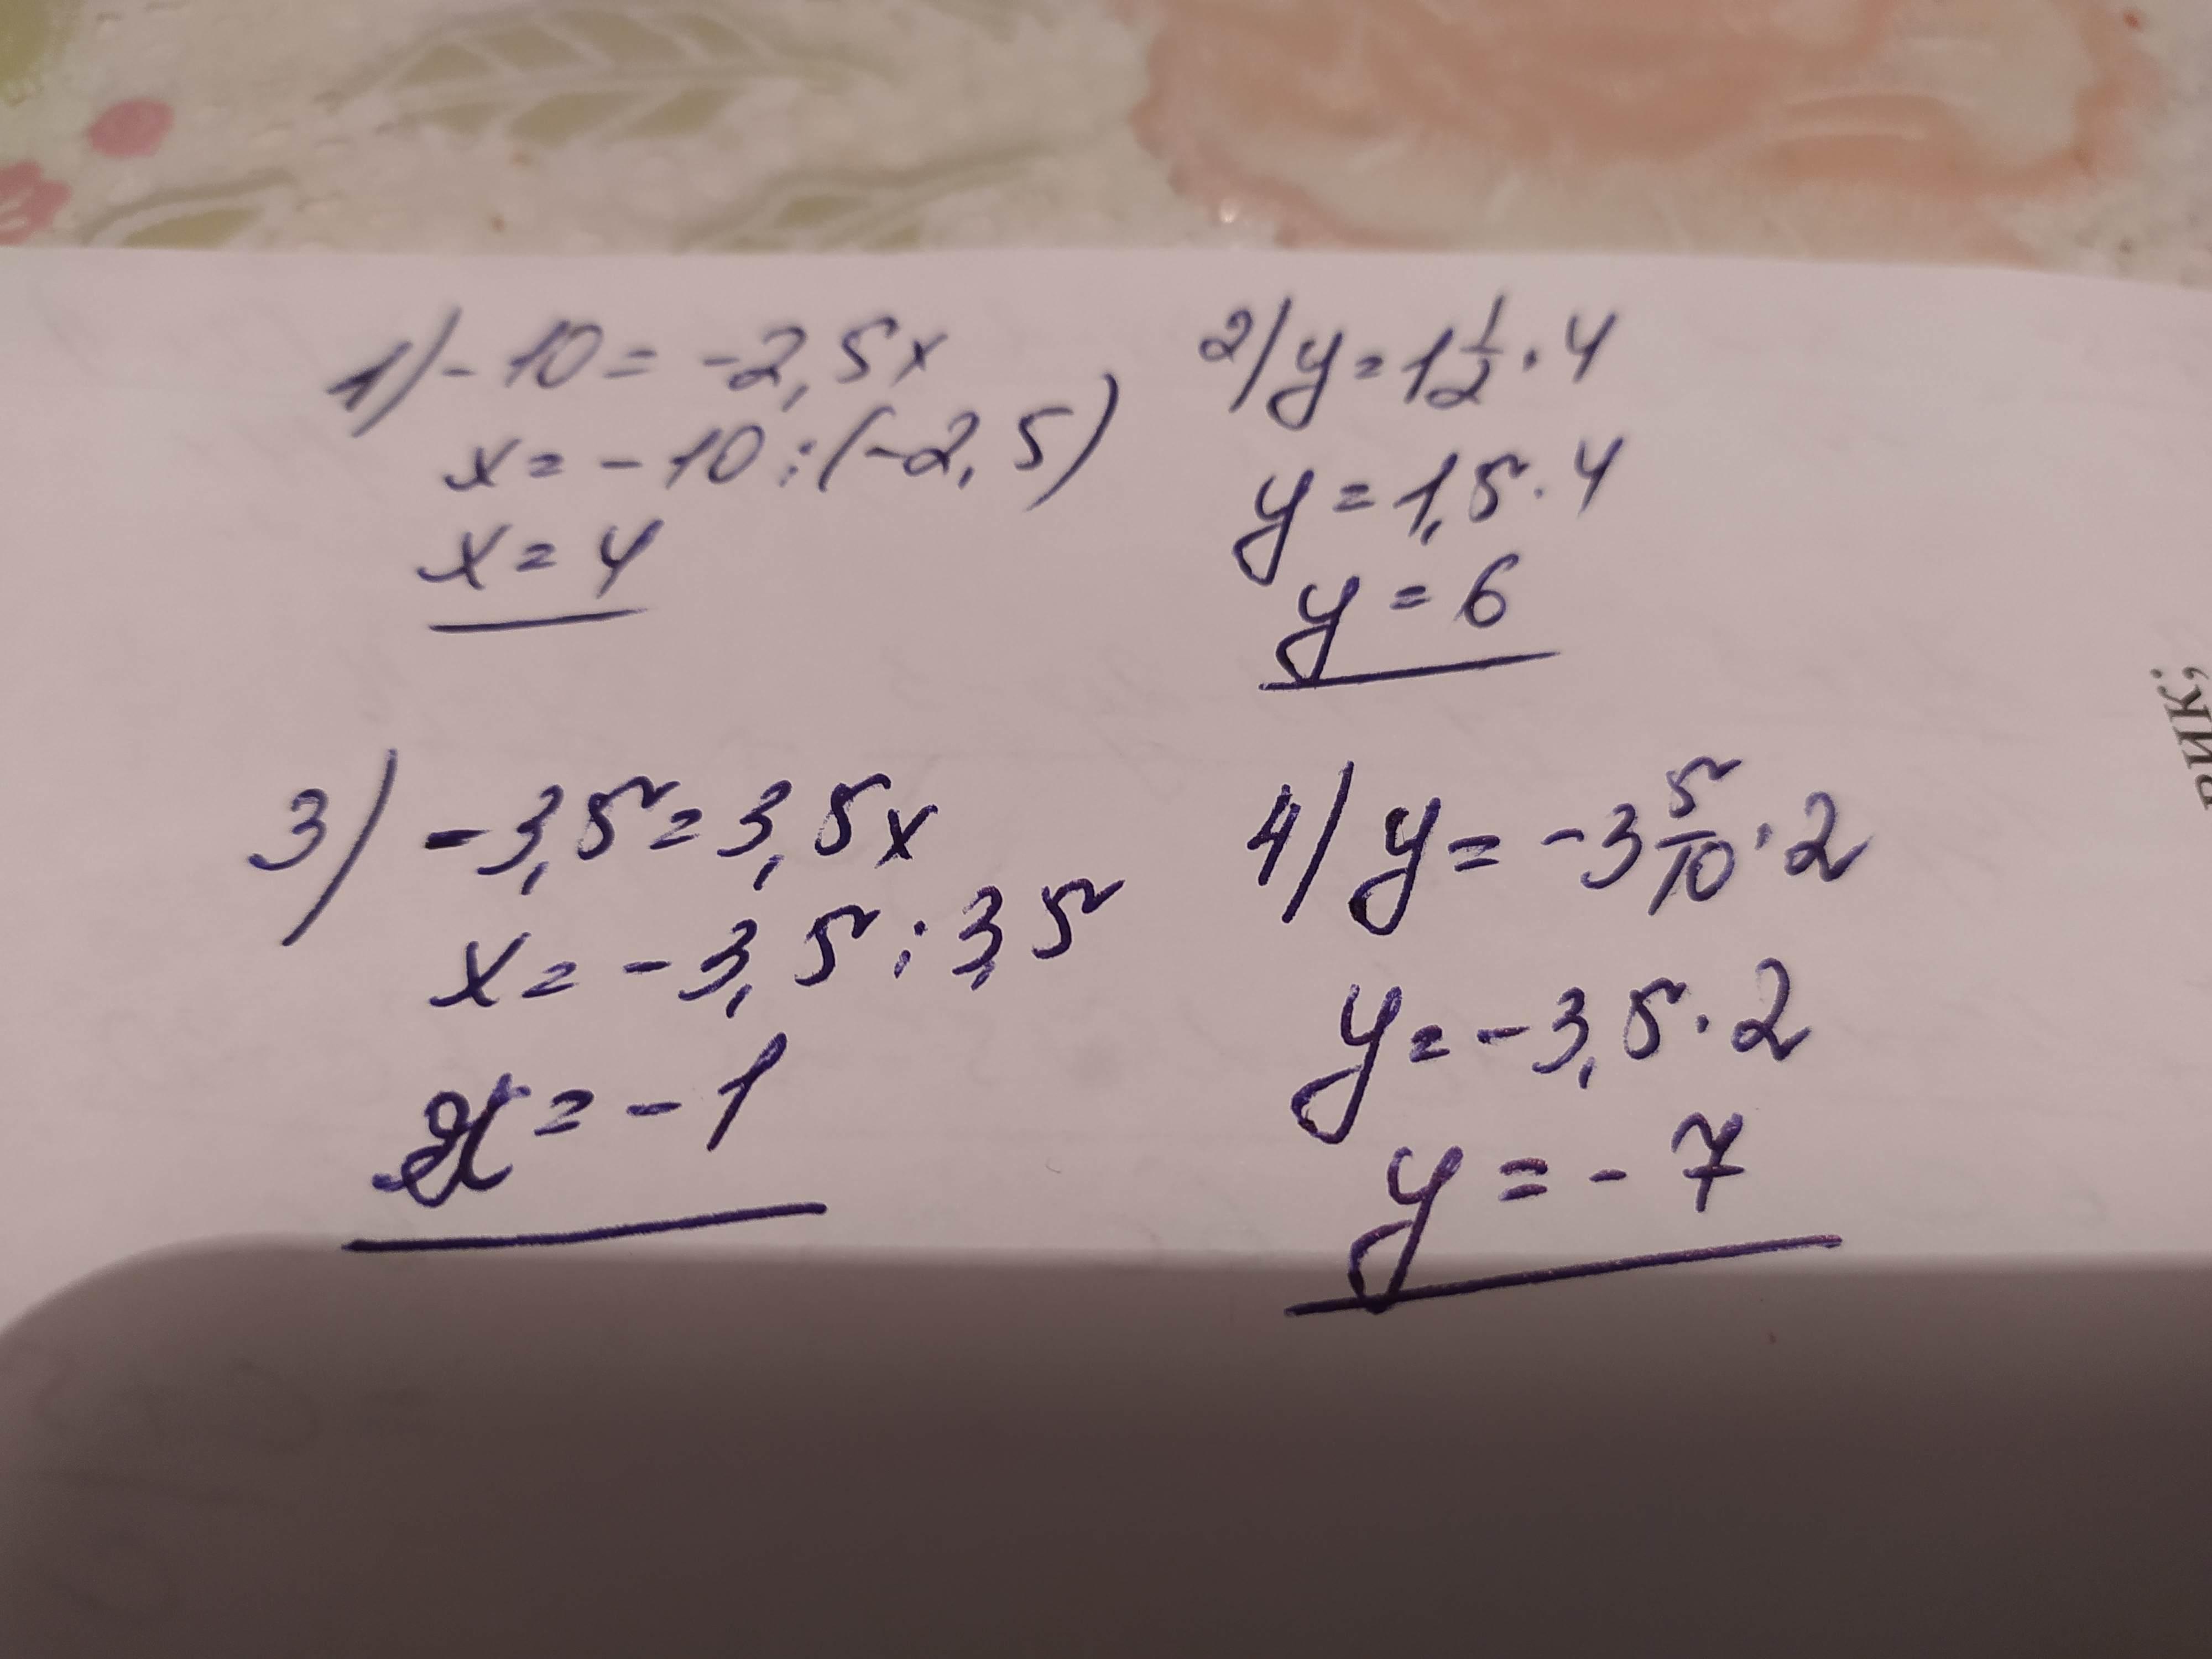 1) -10 = -2,5x
x = -10 : (-2,5)
x = 4
2) y = 1 1/2 · 4
y = 1,5 · 4
y = 6
3) -3,5 = 3,5x
x = -3,5 : 3,5
x = -1
4) y = -3 5/10 · 2
y = -3,5 · 2
y = -7